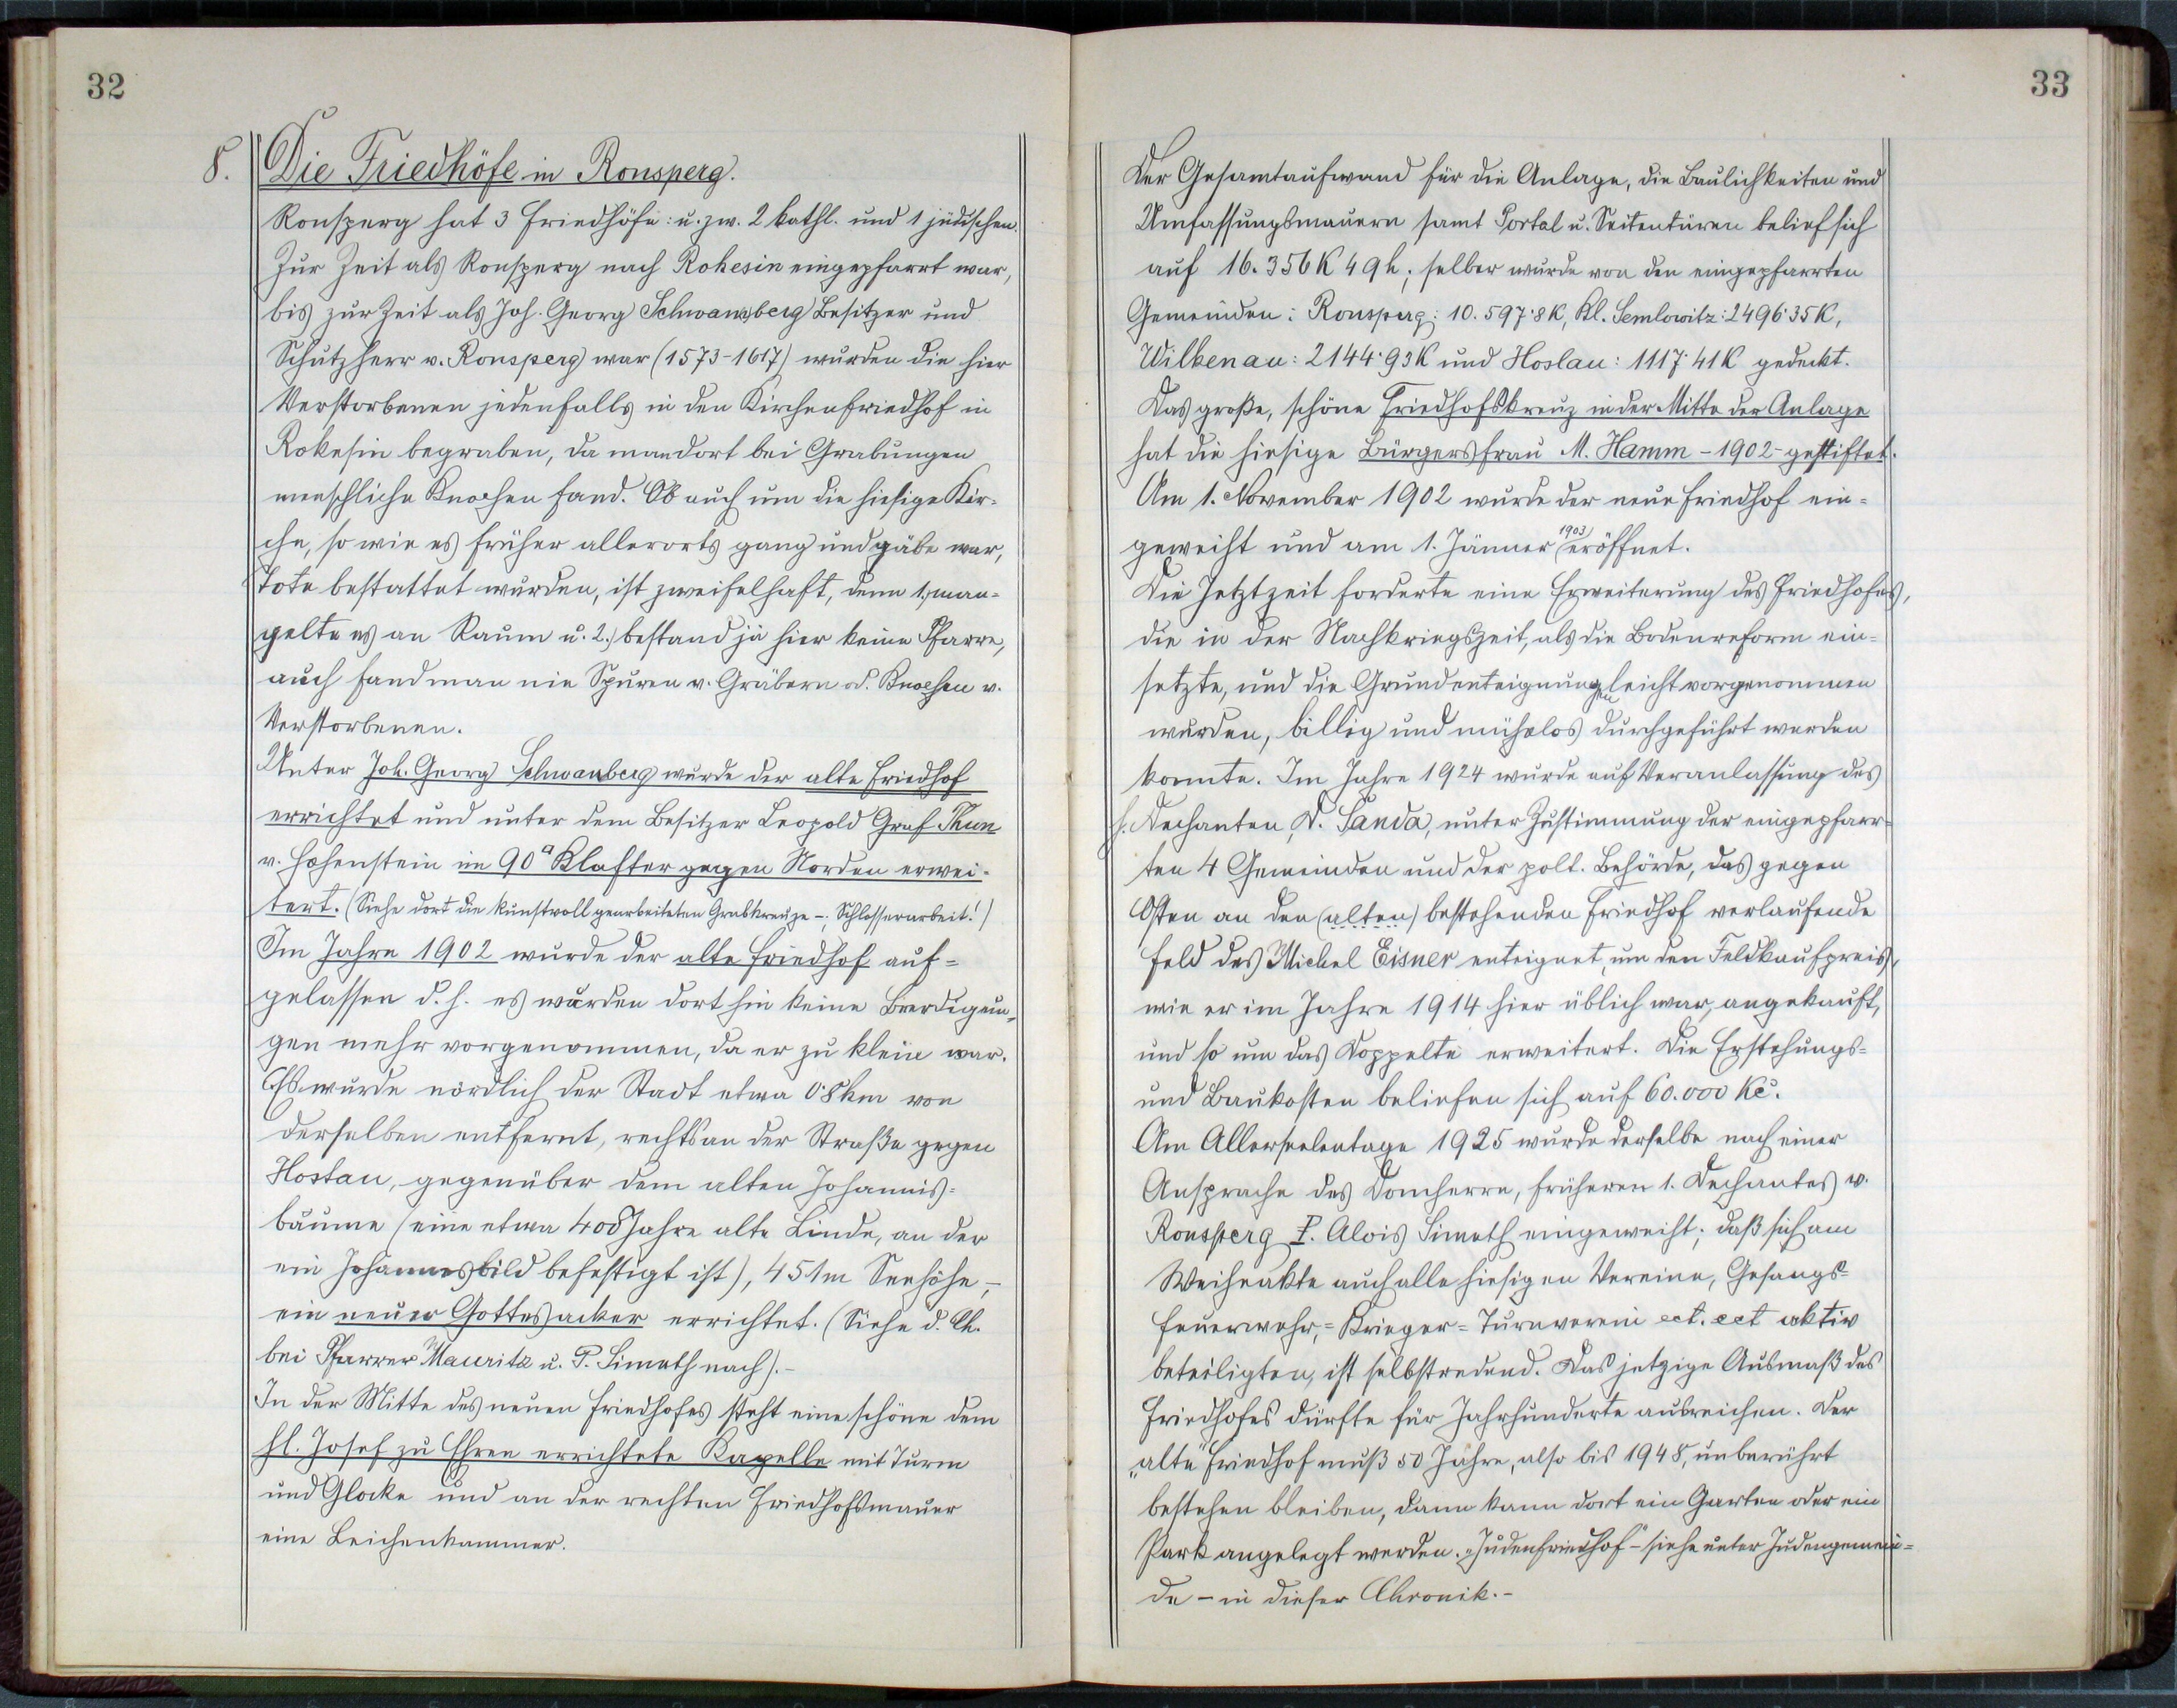 32
8. Die Friedhöfe in Ronsperg.
Ronsperg hat 3 Friedhöfe: u. zw. 2 kathl. und 1 jüdischen.
Zur Zeit als Ronsperg nach Rokesin eingepfarrt war,
bis zur Zeit als Joh. Georg Schwanberg Besitzer und
Schutzherr v. Ronsperg war (1573-1617) wurden die hier
Verstorbenen jedenfalls in den Kirchenfriedhof in
Rokesin begraben, da man dort bei Grabungen
menschliche Knochen fand. Ob auch um die hiesige Kir-
che, so wie es früher allerorts gang und gäbe war,
Tote bestattet wurden, ist zweifelhaft, denn 1.) man-
gelte es an Raum u. 2.) bestand ja hier keine Pfarre,
auch fand man nie Spuren v. Gräbern od. Knochen v.
Verstorbenen.
Unter Joh. Georg Schwanberg wurde der alte Friedhof
errichtet und unter dem Besitzer Leopold Graf Thun
v. Hohenstein im 90a Klafter gegen Norden erwei-
tert. (Siehe dort die kunstvoll gearbeiteten Grabkreuze -, Schlosserarbeit!)
Im Jahre 1902 wurde der alte Friedhof auf=
gelassen d. h. es wurden dorthin keine Beerdigun=
gen mehr vorgenommen, da er zu klein war.
Es wurde nördlich der Stadt etwa 0·8 km von
derselben entfernt, rechts an der Straße gegen
Hostau, gegenüber dem alten Johannis=
baume (eine etwa 400 Jahre alte Linde, an der
ein Johannesbild befestigt ist), 451 m Seehöhe, -
ein neuer Gottesacker errichtet. (Siehe d. Ch.
bei Pfarrer Mauritz u. P. Simeth nach). -
In der Mitte des neuen Friedhofes steht eine schöne dem
hl. Josef zu Ehren errichtete Kapelle mit Turm
und Glocke und an der rechten Friedhofsmauer
eine Leichenkammer.
33
Der Gesamtaufwand für die Anlage, die Baulichkeiten und
Umfassungsmauern samt Portal u. Seitentüren belief sich
auf 16.356 K 49 h; selber wurde von den eingepfarrten
Gemeinden: Ronsperg: 10.597·8 K, Kl. Semlowitz: 2496·35 K,
Wilkenau: 2144·93 K und Hoslau: 1117·41 K gedeckt.
Das große, schöne Friedhofskreuz in der Mitte der Anlage
hat die hiesige Bürgersfrau M. Hamm - 1902 - gestiftet.
Am 1. November 1902 wurde der neue Friedhof ein=
geweiht und am 1. Jänner 1903 eröffnet.
Die Jetztzeit forderte eine Erweiterung des Friedhofes,
die in der Nachkriegszeit, als die Bodenreform ein=
setzte, und die Grundenteignungen leicht vorgenommen
wurden, billig und mühelos durchgeführt werden
konnte. Im Jahre 1924 wurde auf Veranlassung des
h. Dechanten, D. Šanda, unter Zustimmung der eingepfarr=
ten 4 Gemeinden und der polt. Behörde, das gegen
Osten an den (alten) bestehenden Friedhof verlaufende
Feld des Michel Eisner enteignet, um den Feldkaufpreis,
wie er im Jahre 1914 hier üblich war, angekauft,
und so um das Doppelte erweitert. Die Erstehungs=
und Baukosten beliefen sich auf 60.000 Kč.
Am Allerseelentage 1925 wurde derselbe nach einer
Ansprache des Domherrn, früheren 1. Dechantes v.
Ronsperg P. Alois Simeth eingeweiht; daß sich am
Weiheakte auch alle hiesigen Vereine, Gesangs=
Feuerwehr,= Krieger= Turnverein ect. ect aktiv
beteiligten, ist selbstredend. Das jetzige Ausmaß des
Friedhofes dürfte für Jahrhunderte ausreichen. Der
„alte" Friedhof muß 50 Jahre, also bis 1948, unberührt
bestehen bleiben, dann kann dort ein Garten oder ein
Park angelegt werden. „Judenfriedhof" - siehe unter Judengemein=
de - in dieser Chronik. -